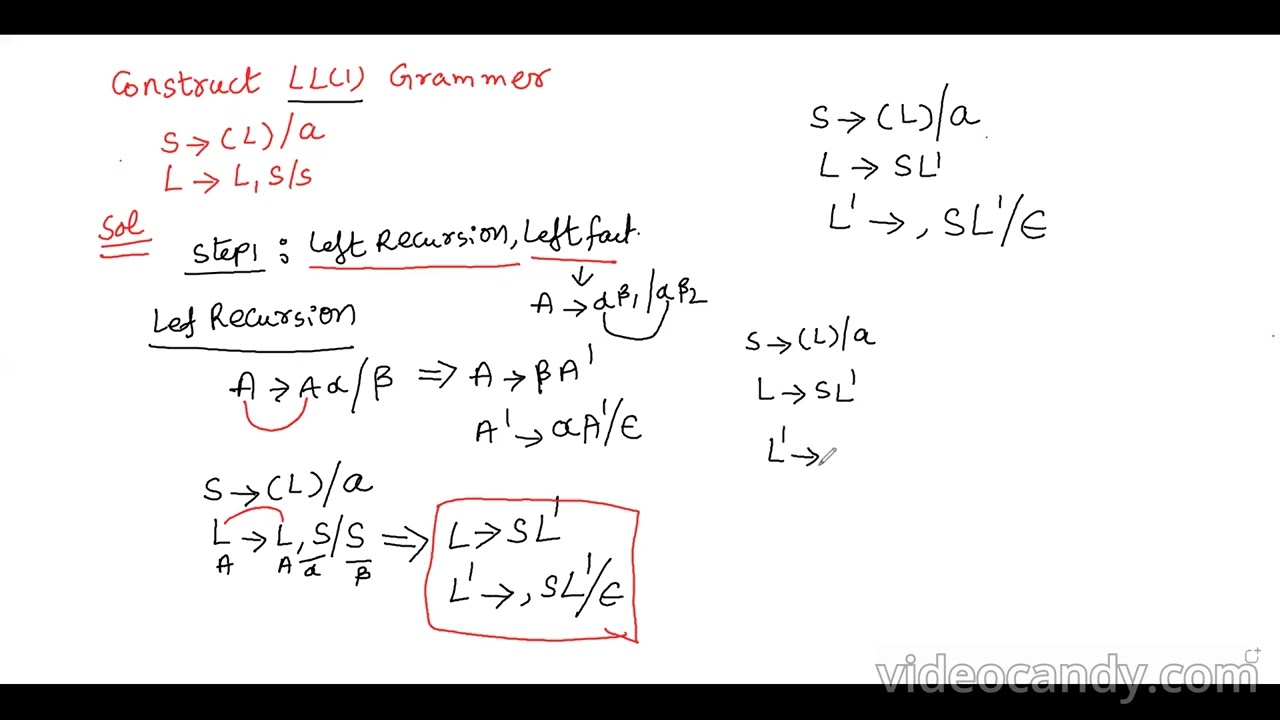 Construct LL(1) Grammer
S → (L)/a
L → L, S/S
Sol
Step1 : Left Recursion, Left fact.
A → αβ1/αβ2
Lef Recursion
A → Aα/β ⇒ A → βA'
A' → αA'/ϵ
S → (L)/a
L → L, S/S ⇒ L → SL'
A A α β
L' → , SL'/ϵ
S → (L)/a
L → SL'
L' → , SL'/ϵ
S → (L)/a
L → SL'
L' →
videocandy.com